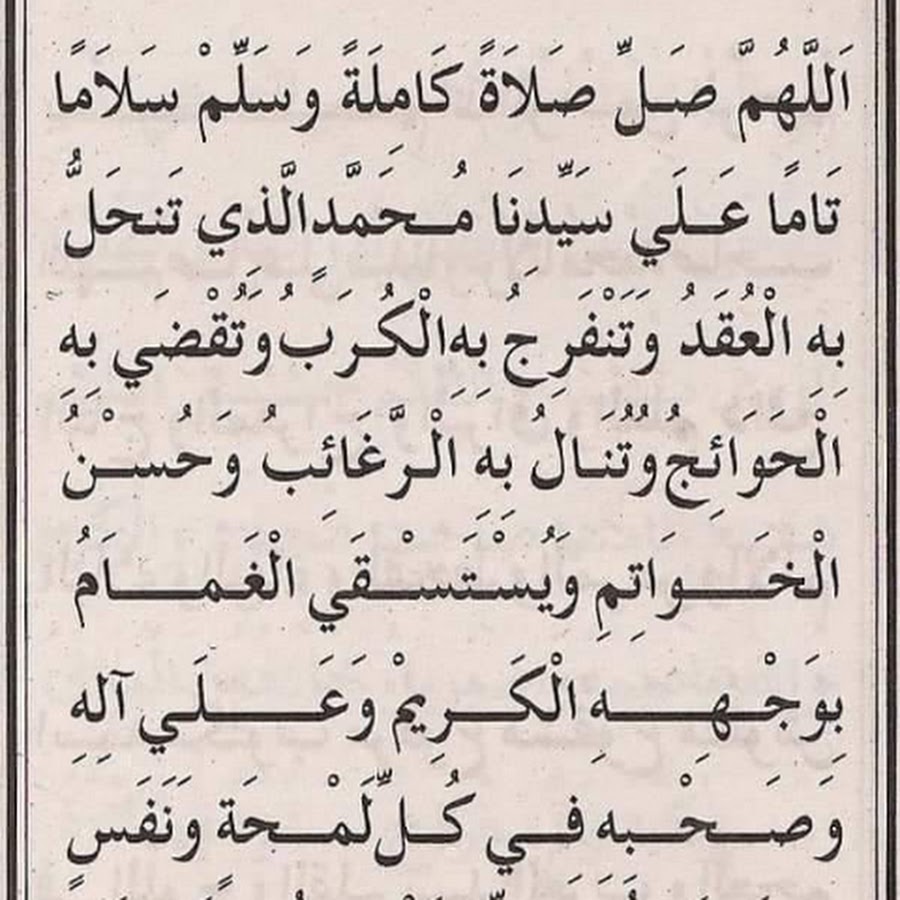 اَللَّهُمَّ صَلِّ صَلاَةً كَامِلَةً وَسَلِّمْ سَلاَمًا
تَامًا عَلَي سَيِّدِنَا مُحَمَّدٍ الَّذي تَنحَلُّ
بِهِ الْعُقَدُ وَتَنْفَرِجُ بِهِ الْكُرَبُ وَتُقْضَي بِهِ
الْحَوَائِجُ وَتُنَالُ بِهِ الْرَّغَائِبُ وَحُسْنُ
الْخَوَاتِمِ وَيُسْتَسْقَي الْغَمَامُ
بِوَجْهِهِ الْكَرِيمْ وَعَلَي آلِهِ
وَصَحْبِهِ في كُلِّ لَمْحَةٍ وَنَفَسٍ